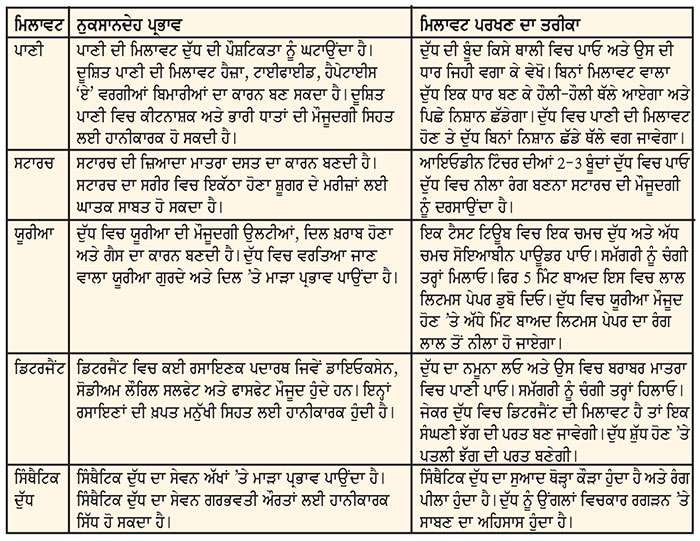 ਮਿਲਾਵਟ
ਨੁਕਸਾਨਦੇਹ ਪ੍ਰਭਾਵ
ਮਿਲਾਵਟ ਪਰਖਣ ਦਾ ਤਰੀਕਾ
ਪਾਣੀ
ਪਾਣੀ ਦੀ ਮਿਲਾਵਟ ਦੁੱਧ ਦੀ ਪੌਸ਼ਟਿਕਤਾ ਨੂੰ ਘਟਾਉਂਦਾ ਹੈ।
ਦੂਸ਼ਿਤ ਪਾਣੀ ਦੀ ਮਿਲਾਵਟ ਹੈਜ਼ਾ, ਟਾਈਫਾਈਡ, ਹੈਪੇਟਾਈਸ
‘ਏ’ ਵਰਗੀਆਂ ਬਿਮਾਰੀਆਂ ਦਾ ਕਾਰਨ ਬਣ ਸਕਦਾ ਹੈ। ਦੂਸ਼ਿਤ
ਪਾਣੀ ਵਿਚ ਕੀਟਨਾਸ਼ਕ ਅਤੇ ਭਾਰੀ ਧਾਤਾਂ ਦੀ ਮੌਜੂਦਗੀ ਸਿਹਤ
ਲਈ ਹਾਨੀਕਾਰਕ ਹੋ ਸਕਦੀ ਹੈ।
ਦੁੱਧ ਦੀ ਬੂੰਦ ਕਿਸੇ ਥਾਲੀ ਵਿਚ ਪਾਓ ਅਤੇ ਉਸ ਦੀ
ਧਾਰ ਜਿਹੀ ਵਗਾ ਕੇ ਵੇਖੋ। ਬਿਨਾਂ ਮਿਲਾਵਟ ਵਾਲਾ
ਦੁੱਧ ਇਕ ਧਾਰ ਬਣ ਕੇ ਹੌਲੀ-ਹੌਲੀ ਥੱਲੇ ਆਏਗਾ ਅਤੇ
ਪਿਛੇ ਨਿਸ਼ਾਨ ਛੱਡੇਗਾ। ਦੁੱਧ ਵਿਚ ਪਾਣੀ ਦੀ ਮਿਲਾਵਟ
ਹੋਣ ਤੇ ਦੁੱਧ ਬਿਨਾਂ ਨਿਸ਼ਾਨ ਛੱਡੇ ਥੱਲੇ ਵਗ ਜਾਵੇਗਾ।
ਸਟਾਰਚ
ਸਟਾਰਚ ਦੀ ਜ਼ਿਆਦਾ ਮਾਤਰਾ ਦਸਤ ਦਾ ਕਾਰਨ ਬਣਦੀ ਹੈ।
ਸਟਾਰਚ ਦਾ ਸਰੀਰ ਵਿਚ ਇਕੱਠਾ ਹੋਣਾ ਸ਼ੂਗਰ ਦੇ ਮਰੀਜ਼ਾਂ ਲਈ
ਘਾਤਕ ਸਾਬਤ ਹੋ ਸਕਦਾ ਹੈ।
ਆਇਓਡੀਨ ਟਿੰਚਰ ਦੀਆਂ 2-3 ਬੂੰਦਾਂ ਦੁੱਧ ਵਿਚ ਪਾਓ
ਦੁੱਧ ਵਿਚ ਨੀਲਾ ਰੰਗ ਬਣਨਾ ਸਟਾਰਚ ਦੀ ਮੌਜੂਦਗੀ
ਨੂੰ ਦਰਸਾਉਂਦਾ ਹੈ।
ਯੂਰੀਆ
ਦੁੱਧ ਵਿਚ ਯੂਰੀਆ ਦੀ ਮੌਜੂਦਗੀ ਉਲਟੀਆਂ, ਦਿਲ ਖ਼ਰਾਬ ਹੋਣਾ
ਅਤੇ ਗੈਸ ਦਾ ਕਾਰਨ ਬਣਦੀ ਹੈ। ਦੁੱਧ ਵਿਚ ਵਰਤਿਆ ਜਾਣ
ਵਾਲਾ ਯੂਰੀਆ ਗੁਰਦੇ ਅਤੇ ਦਿਲ ’ਤੇ ਮਾੜਾ ਪ੍ਰਭਾਵ ਪਾਉਂਦਾ ਹੈ।
ਇਕ ਟੈਸਟ ਟਿਊਬ ਵਿਚ ਇਕ ਚਮਚ ਦੁੱਧ ਅਤੇ ਅੱਧ
ਚਮਚ ਸੋਇਆਬੀਨ ਪਾਊਡਰ ਪਾਓ। ਸਮੱਗਰੀ ਨੂੰ ਚੰਗੀ
ਤਰ੍ਹਾਂ ਮਿਲਾਓ। ਫਿਰ 5 ਮਿੰਟ ਬਾਅਦ ਇਸ ਵਿਚ ਲਾਲ
ਲਿਟਮਸ ਪੇਪਰ ਡੁਬੋ ਦਿਓ। ਦੁੱਧ ਵਿਚ ਯੂਰੀਆ ਮੌਜੂਦ
ਹੋਣ ’ਤੇ ਅੱਧੇ ਮਿੰਟ ਬਾਅਦ ਲਿਟਮਸ ਪੇਪਰ ਦਾ ਰੰਗ
ਲਾਲ ਤੋਂ ਨੀਲਾ ਹੋ ਜਾਏਗਾ।
ਡਿਟਰਜੈਂਟ
ਡਿਟਰਜੈਂਟ ਵਿਚ ਕਈ ਰਸਾਇਣਕ ਪਦਾਰਥ ਜਿਵੇਂ ਡਾਇਓਕਸੇਨ,
ਸੋਡੀਅਮ ਲੌਰਿਲ ਸਲਫੇਟ ਅਤੇ ਫਾਸਫੇਟ ਮੌਜੂਦ ਹੁੰਦੇ ਹਨ। ਇਨ੍ਹਾਂ
ਰਸਾਇਣਾਂ ਦੀ ਖ਼ਪਤ ਮਨੁੱਖੀ ਸਿਹਤ ਲਈ ਹਾਨੀਕਾਰਕ ਹੁੰਦੀ ਹੈ।
ਦੁੱਧ ਦਾ ਨਮੂਨਾ ਲਓ ਅਤੇ ਉਸ ਵਿਚ ਬਰਾਬਰ ਮਾਤਰਾ
ਵਿਚ ਪਾਣੀ ਪਾਓ। ਸਮੱਗਰੀ ਨੂੰ ਚੰਗੀ ਤਰ੍ਹਾਂ ਹਿਲਾਓ।
ਜੇਕਰ ਦੁੱਧ ਵਿਚ ਡਿਟਰਜੈਂਟ ਦੀ ਮਿਲਾਵਟ ਹੈ ਤਾਂ ਇਕ
ਸੰਘਣੀ ਝੱਗ ਦੀ ਪਰਤ ਬਣ ਜਾਵੇਗੀ। ਦੁੱਧ ਸ਼ੁੱਧ ਹੋਣ ’ਤੇ
ਪਤਲੀ ਝੱਗ ਦੀ ਪਰਤ ਬਣੇਗੀ।
ਸਿੰਥੈਟਿਕ
ਦੁੱਧ
ਸਿੰਥੈਟਿਕ ਦੁੱਧ ਦਾ ਸੇਵਨ ਅੱਖਾਂ ’ਤੇ ਮਾੜਾ ਪ੍ਰਭਾਵ ਪਾਉਂਦਾ ਹੈ।
ਸਿੰਥੈਟਿਕ ਦੁੱਧ ਦਾ ਸੇਵਨ ਗਰਭਵਤੀ ਔਰਤਾਂ ਲਈ ਹਾਨੀਕਾਰਕ
ਸਿੱਧ ਹੋ ਸਕਦਾ ਹੈ।
ਸਿੰਥੈਟਿਕ ਦੁੱਧ ਦਾ ਸੁਆਦ ਥੋੜ੍ਹਾ ਕੌੜਾ ਹੁੰਦਾ ਹੈ ਅਤੇ ਰੰਗ
ਪੀਲਾ ਹੁੰਦਾ ਹੈ। ਦੁੱਧ ਨੂੰ ਉਂਗਲਾਂ ਵਿਚਕਾਰ ਰਗੜਨ ’ਤੇ
ਸਾਬਣ ਦਾ ਅਹਿਸਾਸ ਹੁੰਦਾ ਹੈ।